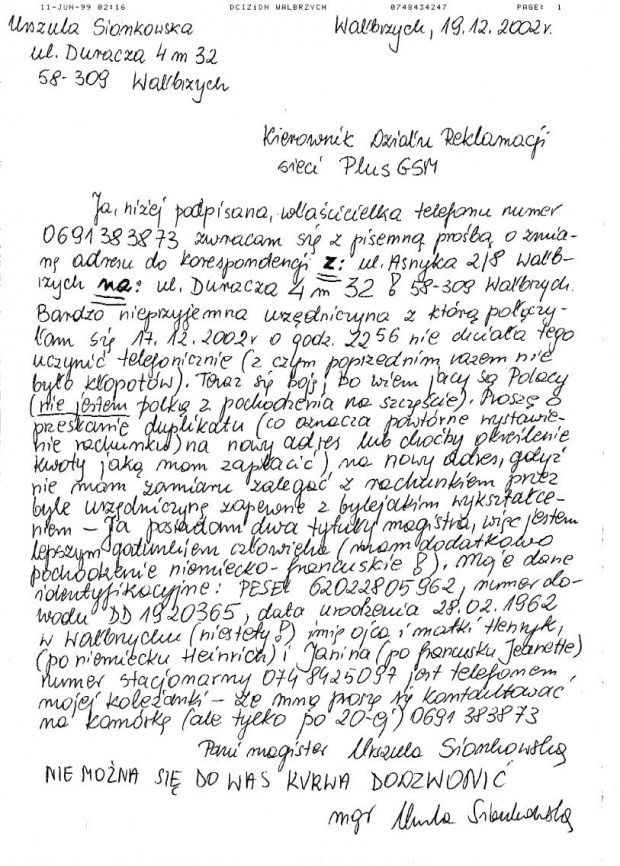 11-JUN-99 02:16 DCIZiDN WALBRZYCH 0748434247 PAGE: 1
Urszula Sionkowska Wałbrzych, 19.12.2002r.
ul. Duracza 4 m 32
58-309 Wałbrzych
Kierownik Działu Reklamacji
sieci Plus GSM
Ja, niżej podpisana, właścicielka telefonu numer
0691383873 zwracam się z pisemną prośbą o zmia-
nę adresu do korespondencji z: ul. Asnyka 2/8 Wałb-
rzych na: ul. Duracza 4 m 32 ! 58-309 Wałbrzych.
Bardzo nieprzyjemna urzędniczyna z którą połączy-
łam się 17.12.2002r o godz. 22 56 nie chciała tego
uczynić telefonicznie (z czym poprzednim razem nie
było kłopotów). Teraz się boję, bo wiem jacy są Polacy
(nie jestem polką z pochodzenia na szczęście). Proszę o
przesłanie duplikatu (co oznacza powtórne wystawie-
nie rachunku) na nowy adres lub choćby określenie
kwoty jaką mam zapłacić), na nowy adres, gdyż
nie mam zamiaru zalegać z rachunkiem przez
byle urzędniczynę zapewne z bylejakim wykształce-
niem – Ja posiadam dwa tytuły magistra, więc jestem
lepszym gatunkiem człowieka (mam dodatkowo
pochodzenie niemiecko-francuskie !). Moje dane
identyfikacyjne: PESEL 62022805962, numer do-
wodu DD 1920365, data urodzenia 28.02.1962
w Wałbrzychu (niestety!) imię ojca i matki Henryk,
(po niemiecku Heinrich) i Janina (po francusku Jeanette)
numer stacjonarny 074 8425097 jest telefonem
mojej koleżanki – ze mną proszę się kontaktować
na komórkę (ale tylko po 20-ej) 0691 383873
Pani magister Urszula Sionkowska
NIE MOŻNA SIĘ DO WAS KURWA DODZWONIĆ
mgr Urszula Sionkowska